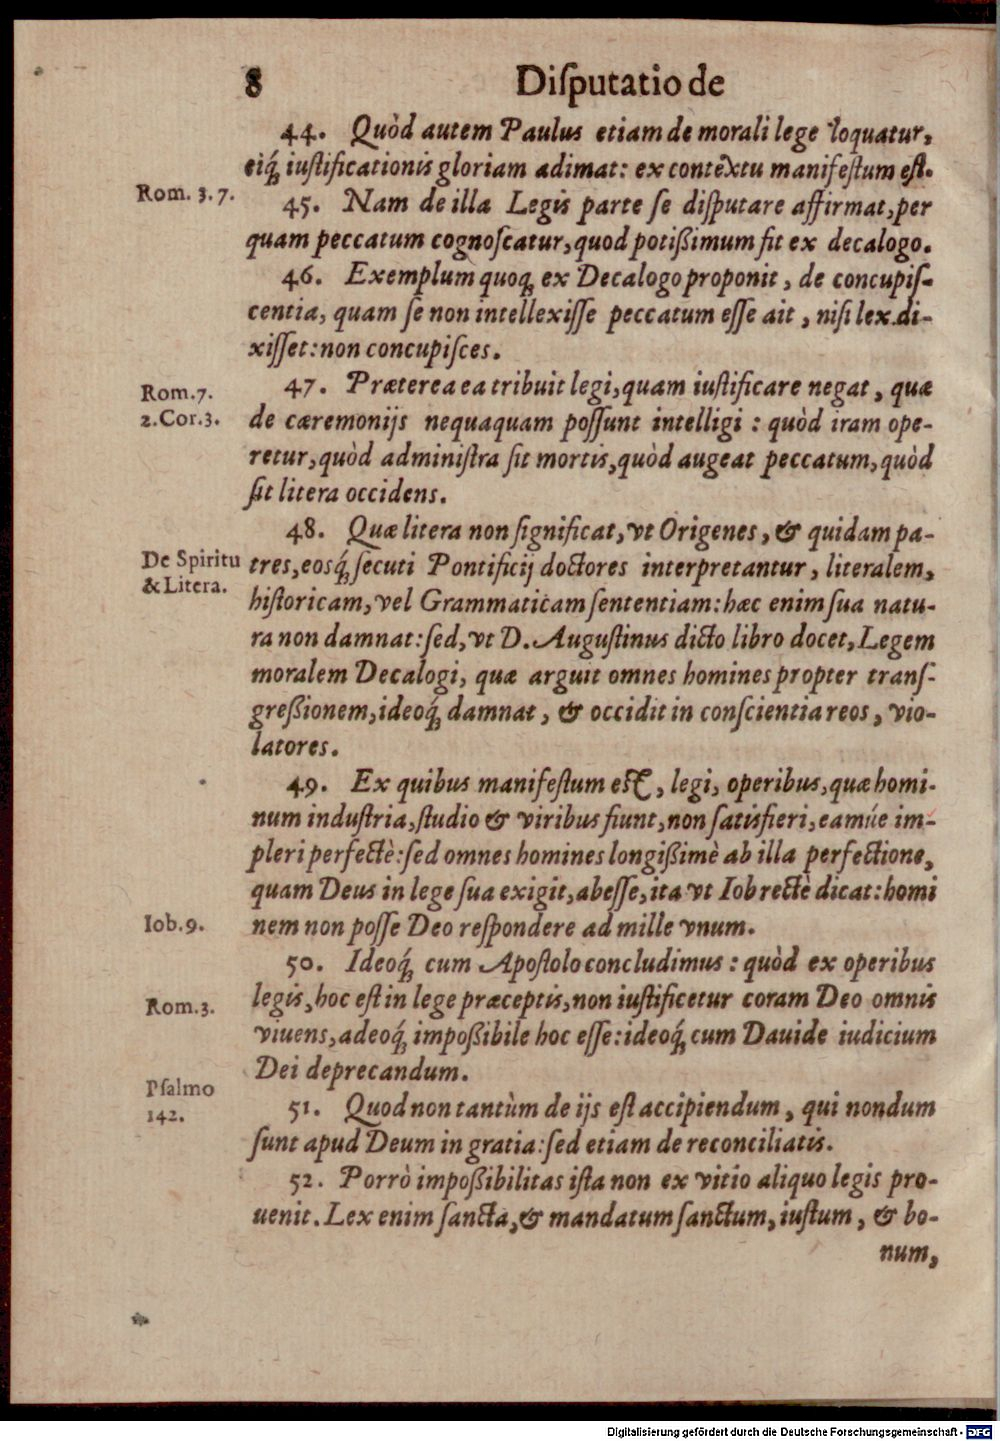 8 Diſputatio de
44. Quòd autem Paulus etiam de morali lege loquatur,
eiq́; iuſtificationis gloriam adimat: ex contextu manifeſtum eſt.
Rom. 3. 7.
45. Nam de illa Legis parte ſe diſputare affirmat, per
quam peccatum cognoſcatur, quod potißimum fit ex decalogo.
46. Exemplum quoq; ex Decalogo proponit, de concupiſ-
centia, quam ſe non intellexiſſe peccatum eſſe ait, niſi lex di-
xiſſet: non concupiſces.
Rom. 7.
2. Cor. 3.
47. Præterea ea tribuit legi, quam iuſtificare negat, quæ
de cæremonijs nequaquam poſſunt intelligi: quòd iram ope-
retur, quòd adminiſtra ſit mortis, quòd augeat peccatum, quòd
ſit litera occidens.
48. Quæ litera non ſignificat, vt Origenes, & quidam pa-
De Spiritu
& Litera.
tres, eosq́; ſecuti Pontificij doctores interpretantur, literalem,
hiſtoricam, vel Grammaticam ſententiam: hæc enim ſua natu-
ra non damnat: ſed, vt D. Auguſtinus dicto libro docet, Legem
moralem Decalogi, quæ arguit omnes homines propter tranſ-
greßionem, ideoq́; damnat, & occidit in conſcientia reos, vio-
latores.
49. Ex quibus manifeſtum eſt, legi, operibus, quæ homi-
num induſtria, ſtudio & viribus fiunt, non ſatisfieri, eamúe im-
pleri perfectè: ſed omnes homines longißimè ab illa perfectione,
quam Deus in lege ſua exigit, abeſſe, ita vt Iob rectè dicat: homi
Iob. 9.
nem non poſſe Deo reſpondere ad mille vnum.
50. Ideoq́; cum Apoſtolo concludimus: quòd ex operibus
Rom. 3.
legis, hoc eſt in lege præceptis, non iuſtificetur coram Deo omnis
viuens, adeoq́; impoßibile hoc eſſe: ideoq́; cum Dauide iudicium
Psalmo
142.
Dei deprecandum.
51. Quod non tantùm de ijs eſt accipiendum, qui nondum
ſunt apud Deum in gratia: ſed etiam de reconciliatis.
52. Porrò impoßibilitas iſta non ex vitio aliquo legis pro-
uenit. Lex enim ſancta, & mandatum ſanctum, iuſtum, & bo-
num,
Digitalisierung gefördert durch die Deutsche Forschungsgemeinschaft - DFG